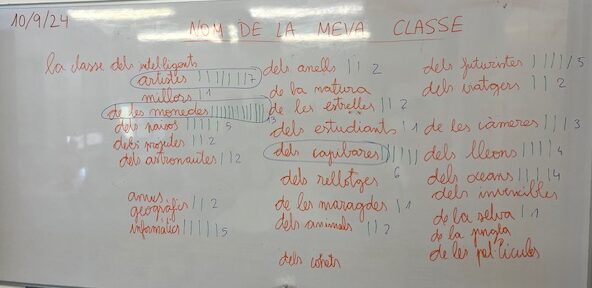 10/9/24
NOM DE LA MEVA CLASSE
la classe dels intel·ligents
artistes 7
millors 1
de les monedes 13
dels nassos 5
dels projectes 2
dels astronautes 2
amics
geogràfics 2
informàtics 5
dels anells 2
de la natura
de les estrelles 2
dels estudiants 1
dels capibares 6
dels rellotges
de les maragdes 1
dels animals 2
dels cohets
dels futuristes 5
dels viatgers 2
de les càmeres 3
dels lleons 4
dels oceans 4
dels invencibles
de la selva 1
de la jungla
de les pel·lícules